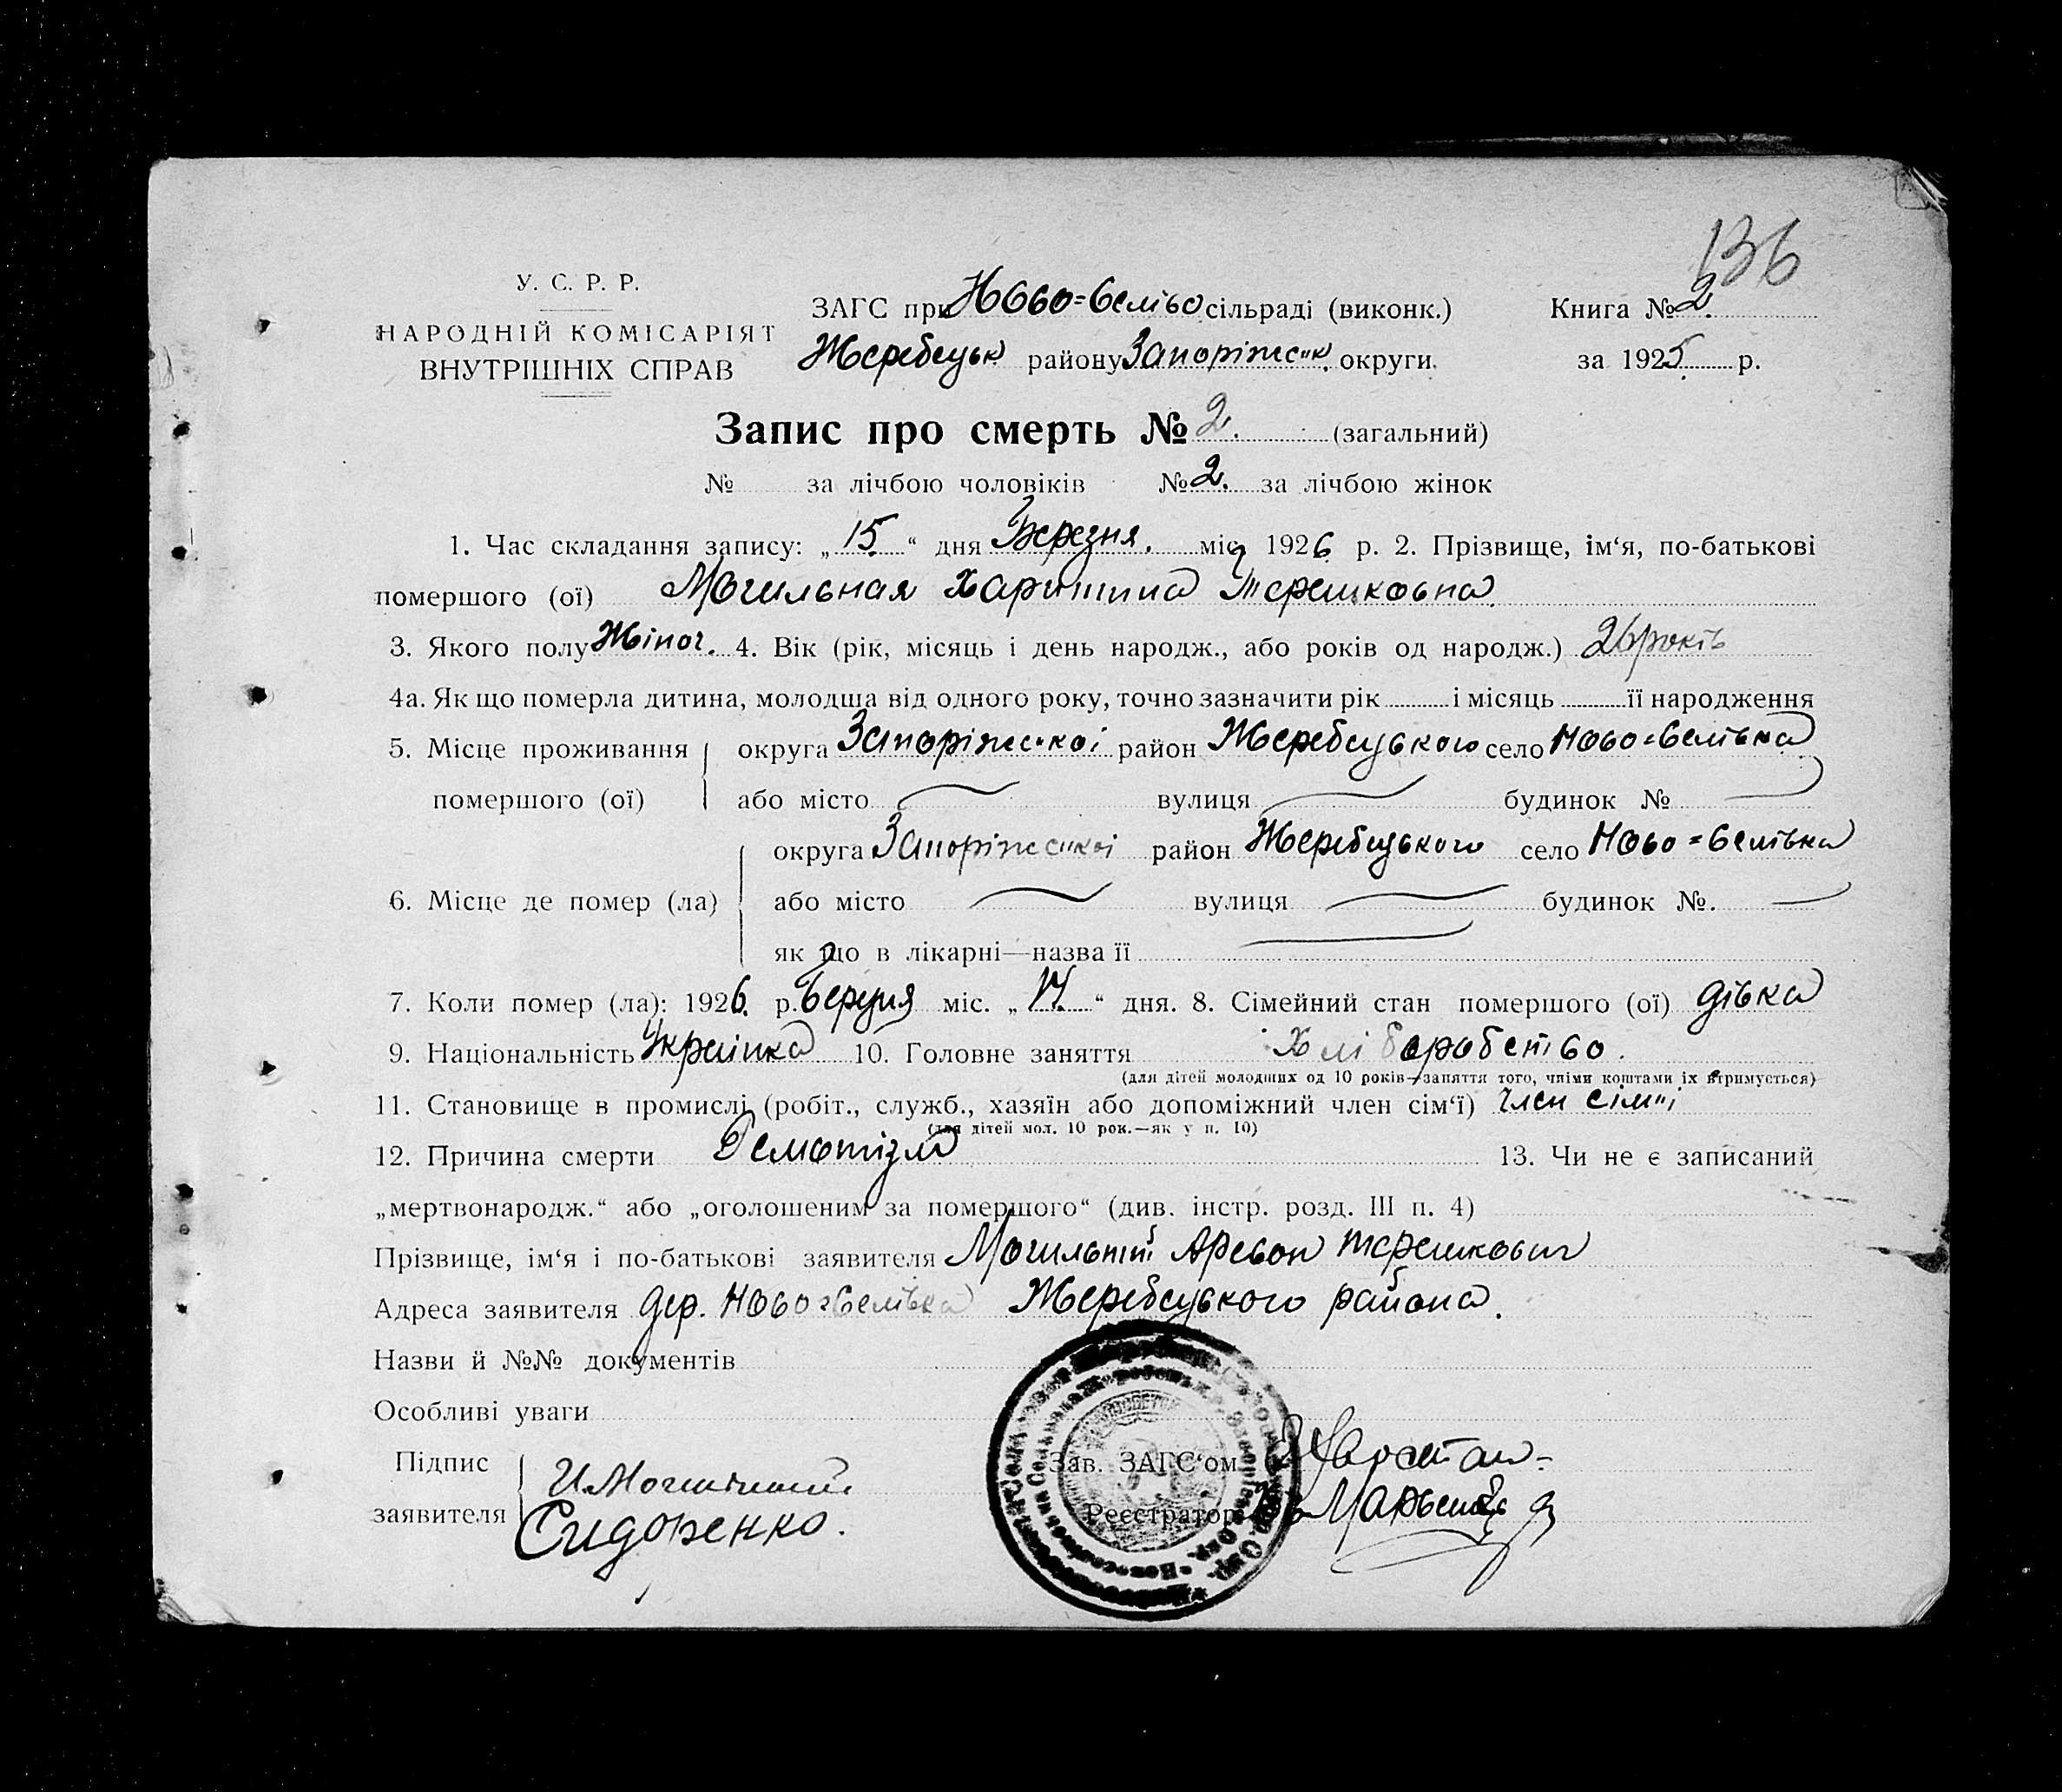 136
У. С. Р. Р.
НАРОДНІЙ КОМІСАРІЯТ
ВНУТРІШНІХ СПРАВ
ЗАГС при Ново=Селіво сільраді (виконк.)
Жеребецьк району Запоріжськ. округи.
Книга № 2.
за 1925 р.
Запис про смерть № 2. (загальний)
№ за лічбою чоловіків № 2. за лічбою жінок
1. Час складання запису: „15.“ дня Березня. міс. 1926 р. 2. Прізвище, ім‘я, по-батькові
помершого (ої) Могильная Харитина Терешковна
3. Якого полу Жіноч. 4. Вік (рік, місяць і день народж., або років од народж.) 26 років
4а. Як що померла дитина, молодша від одного року, точно зазначити рік і місяць її народження
5. Місце проживання округа Запоріжс"кої район Жеребецького село Ново=Селівка
помершого (ої) або місто вулиця будинок №
округа Запоріжс"кої район Жеребецького село Ново=Селівка
6. Місце де помер (ла) або місто вулиця будинок №.
як що в лікарні—назва її
7. Коли помер (ла): 1926. р. Березня міс. „14.“ дня. 8. Сімейний стан помершого (ої) дівка
9. Національність Українка 10. Головне заняття Хліборобство.
(для дітей молодших од 10 років—заняття того, чиїми коштами їх втримується)
11. Становище в промислі (робіт., служб., хазяїн або допоміжний член сім‘ї) член сім"ї
(для дітей мол. 10 рок.—як у п. 10)
12. Причина смерти 13. Чи не є записаний
„мертвонародж.“ або „оголошеним за помершого“ (див. інстр. розд. III п. 4)
Прізвище, ім‘я і по-батькові заявителя Могильний Терешкович
Адреса заявителя дер. Ново=Селівка Жеребецького района.
Назви й №№ документів
Особливі уваги
Підпис И Могильний
заявителя Сидоренко.
Зав. ЗАГС‘ом
Реєстратор